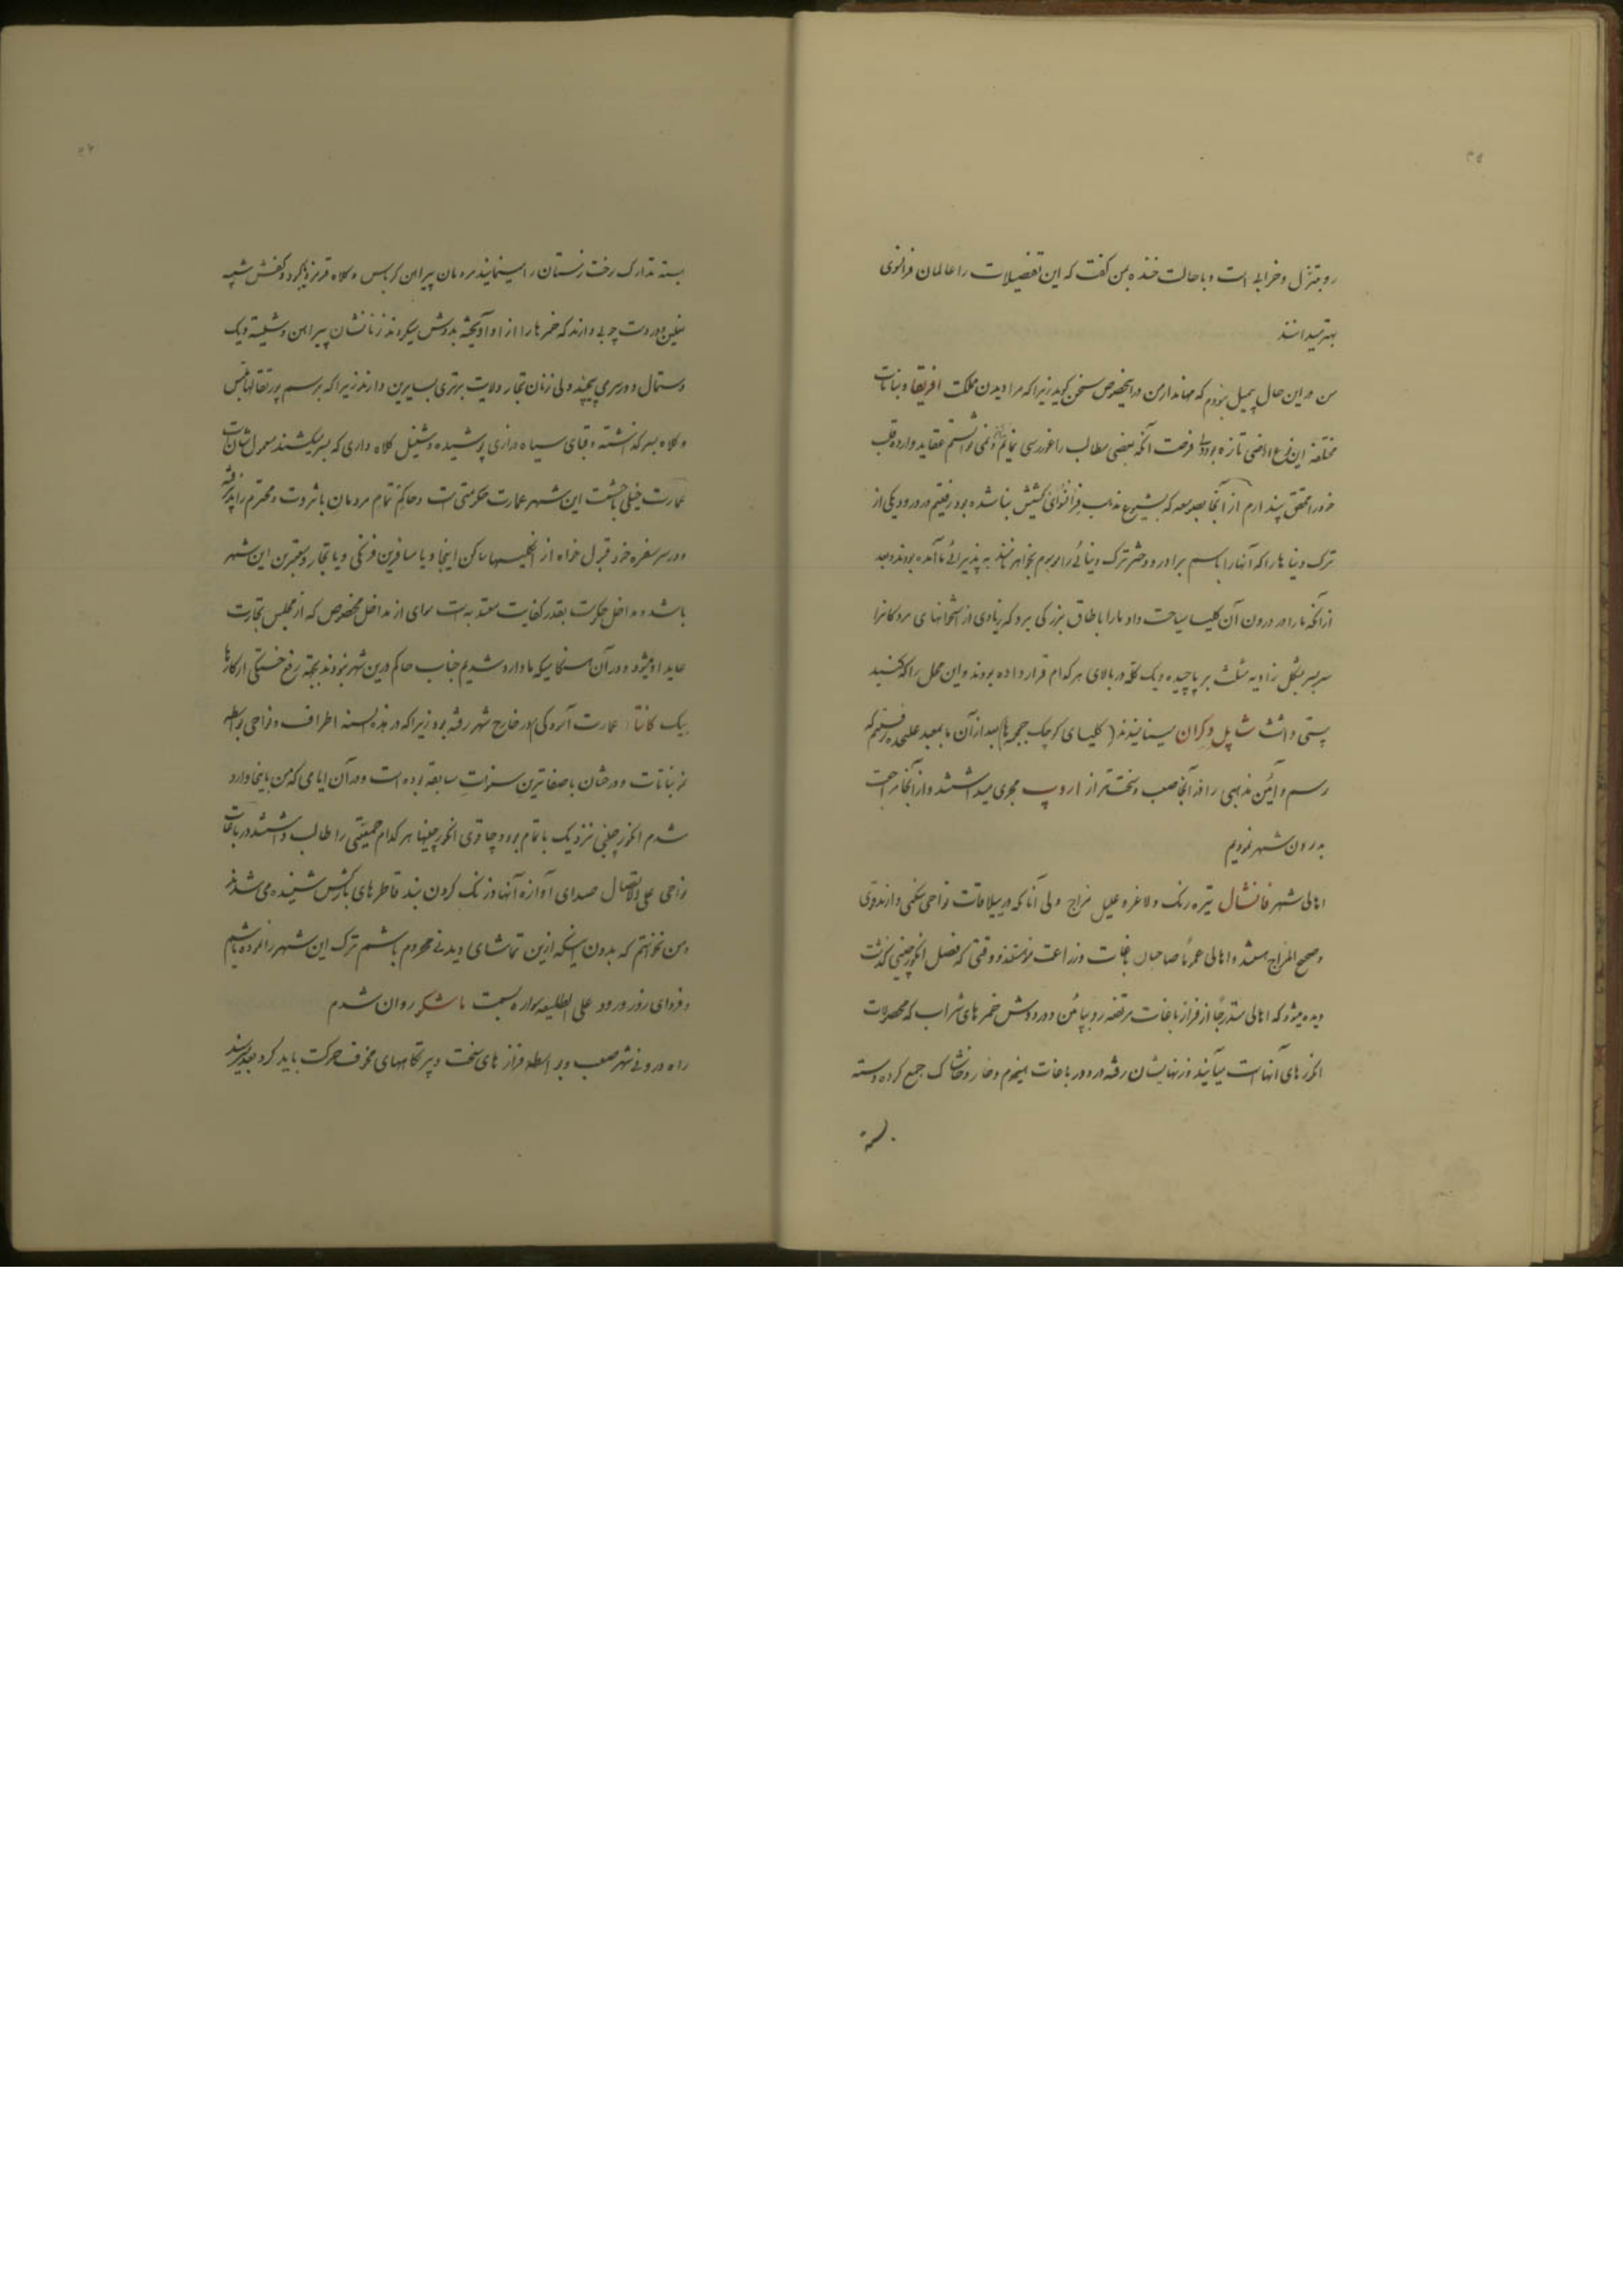 رو بتنزل و خرابه است و با حالت خنده بمن گفت که این تفضیلات را عالمان فرانسوی
بهتر میدانند
من در این حال بیمیل نبودم که مهاندار من در اینخصوص سخن گوید زیرا که مرا دیدن مملکت افریقا و نباتات
مختلفه این نوع اراضی تازه بود ولی فرصت آنکه بعضی مطالب را غوررسی نمایم و نمی توانستم عقاید وارده قلب
خود را محقق پندارم از آنجا بصومعه که بشیوع مذهب کشیش بنا شده بود رفتیم در ورود یکی از
ترک دنیا ها را که آنها را باسم برادر و دختر ترک دنیائی را موسوم بخواهر به پذیرائی ما آمده بودند و بعد
از آنکه ما را در درون آن کلیسا سیاحت داد ما را باطاق بزرگی برد که زیادی از استخوانهای مردکانرا
سربسر بشکل زاویه مثلث بر پا چیده و یک کله در بالای هر کدام قرار داده بودند و این محل را که
پستی داشت شاپل دکران مینامیدند (کلیسای کوچک جمجمه ها) بعد از آن ما بمعبد علیحده رفتیم که
رسم و آئین مذهبی را در آنجا صعب و سختتر از اروپ مجری میداشتند و از آنجا مراجعت
بدرون شهر نمودیم
اهالی شهر فانشال تیره رنک و لاغر و علیل مزاج ولی آنانکه در ییلاقات نواحی سکنی دارند قوی
و صحیح المزاج هستند و اهالی عموماً صاحبان باغات و زراعت هستند و وقتی که فصل انگورچینی گذشت
دیده میشود که اهالی متدرجاً از فراز باغات مرتفعه رو بپائین و در دوش خمر های شراب که محصولات
انگور های آنهاست میآیند و زنهایشان رفته در دور باغات هیزم و خار و خاشاک جمع کرده و بسته
بسته
بسته تدارک رخت زمستان را مینمایند مردمان پیراهن کرباس و کلاه قرمز و کفش شبیه
نعلین و در دست چوبی دارند که خمرها را از او آویخته بدوش میگیرند زنانشان پیراهن و شلیته و یک
دستمال در سر می پیچند ولی زنان تجار ولایت برتری بسایرین دارند زیرا که برسم پورتقالها ملبس
و کلاه بسر گذاشته و قبای سیاه درازی پوشیده و شنل کلاه داری که بسر میکشند معمول شان است
عمارت خیلی باحشمت این شهر عمارت حکومتی است و حاکم تمام مردمان با ثروت و محترم را پذیرفته
و در سر سفره خود قبول خواه از انگلیسهای ساکن اینجا و یا مسافرین فرنگی و یا تجار و معتبرین این شهر
باشد و مداخل حکومت بقدر کفایت معتد به است سوای از مداخل مخصوص که از مجلس تجارت
عاید او میشود و در آن هنگامیکه ما وارد شدیم جناب حاکم درین شهر نبودند بجهة رفع خستگی از کارها
بیک کانتا: عمارت آبرومکی در خارج شهر رفته بود زیرا که در هذه السنه اطراف و نواحی بواسطه
نباتات و درختان با صفاترین سنوات سابقه بوده است و در آن ایامی که من باینجا وارد
شدم انگور چینی نزدیک باتمام بود و چاقوی انگور چینها هر کدام جمعیتی را طالب داشتند در باغات
نواحی علی الاتصال صدای آوازه آنها و زنگ گردن بند قاطرهای بارکش شنیده می شد
و من نخواستم که بدون اینکه ازین تماشای دیدنی محروم باشم ترک این شهر را نموده باشیم
و فردای روز ورود علی الطلیعه سواره بسمت ماشکو روان شدم
راه درونی شهر صعب و بواسطه فراز های سخت و پرتگاههای مخوف حرکت باید کرد